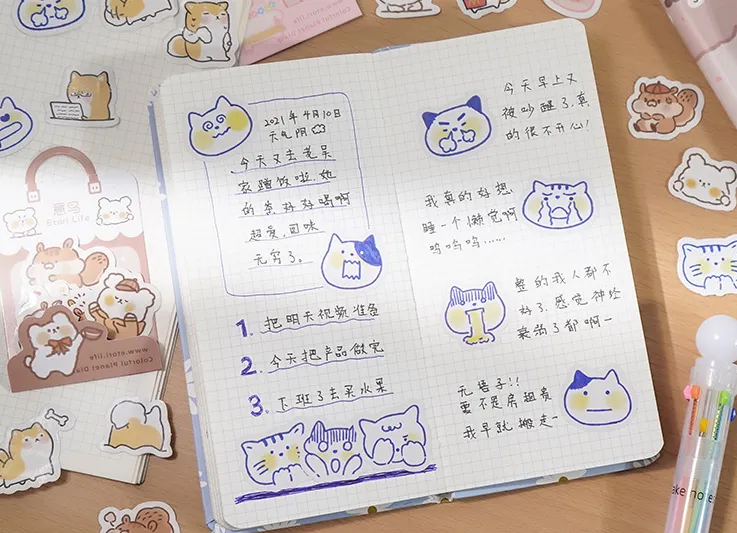 2021年4月10日
天气阴
今天又去老吴
家蹭饭啦,她
的茶好好喝啊
超爱,回味
无穷了。
1. 把明天视频准备
2. 今天把产品做完
3. 下班了去买水果
今天早上又
被吵醒了,真
的很不开心!
我真的好想
睡一个懒觉啊
呜呜呜……
整的我人都不
好了.感觉神经
衰弱了都啊一
无语子!!
要不是房租贵
我早就搬走一
意鸟
Etori Life
www.etori.life
Colorful Planet Dia
ake note